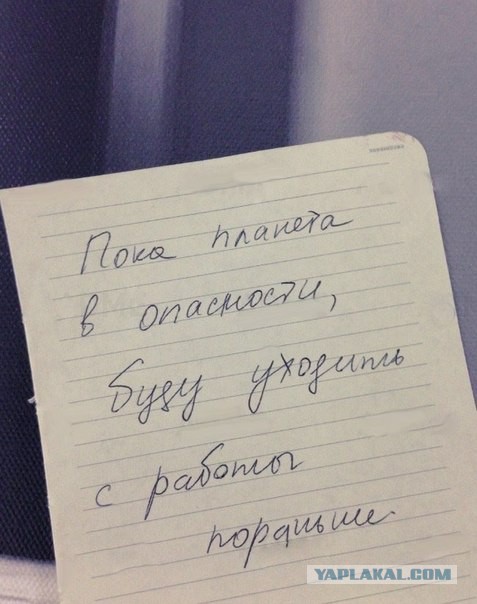 Пока планета
в опасности,
буду уходить
с работы
пораньше
YAPLAKAL.COM